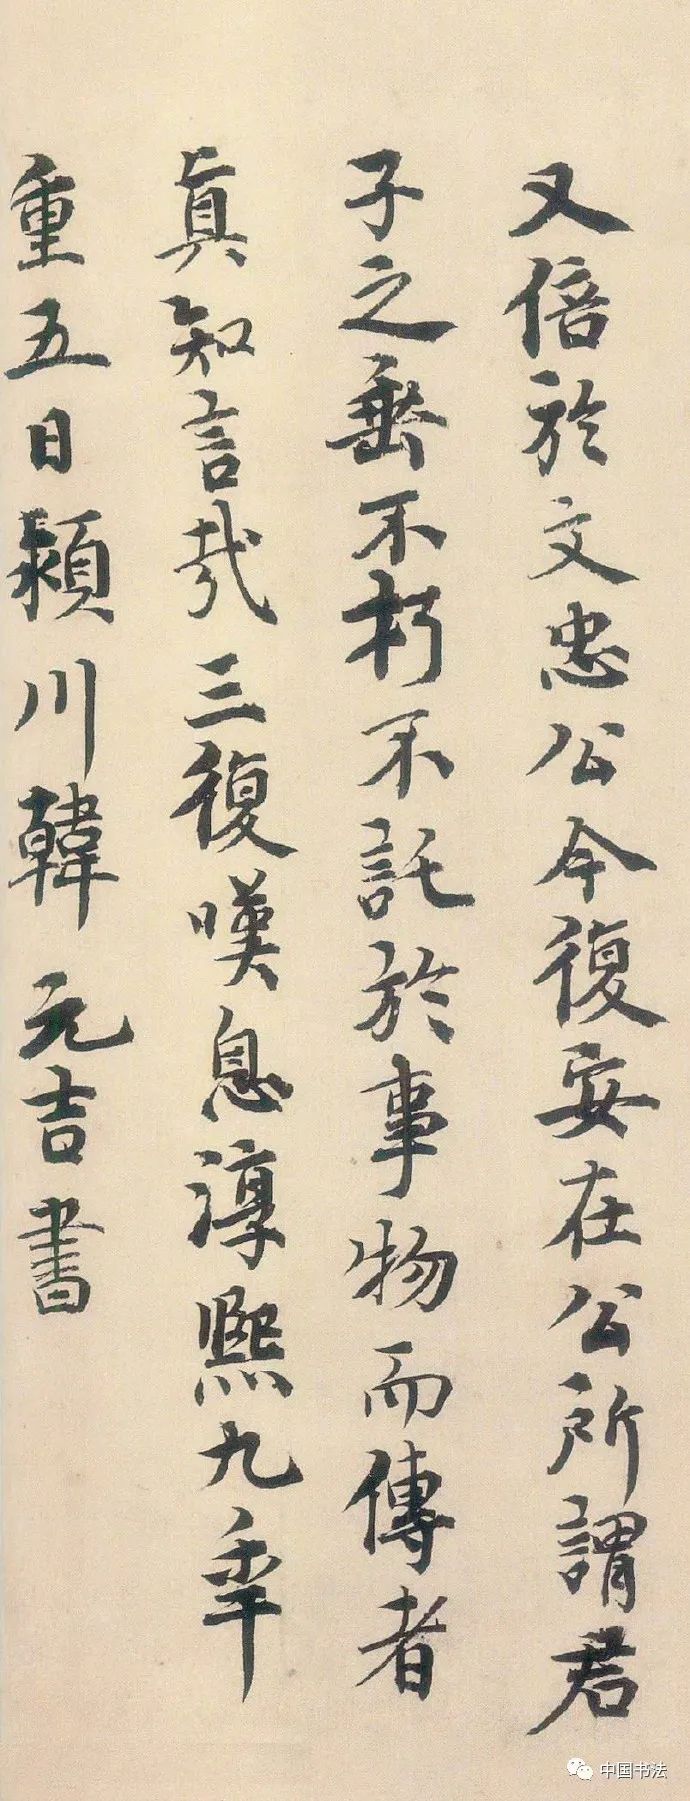 又倍於文忠公今復安在公所謂君
子之垂不朽不託於事物而傳者
真知言哉三復嘆息淳熙九年
重五日潁川韓元吉書
中国书法